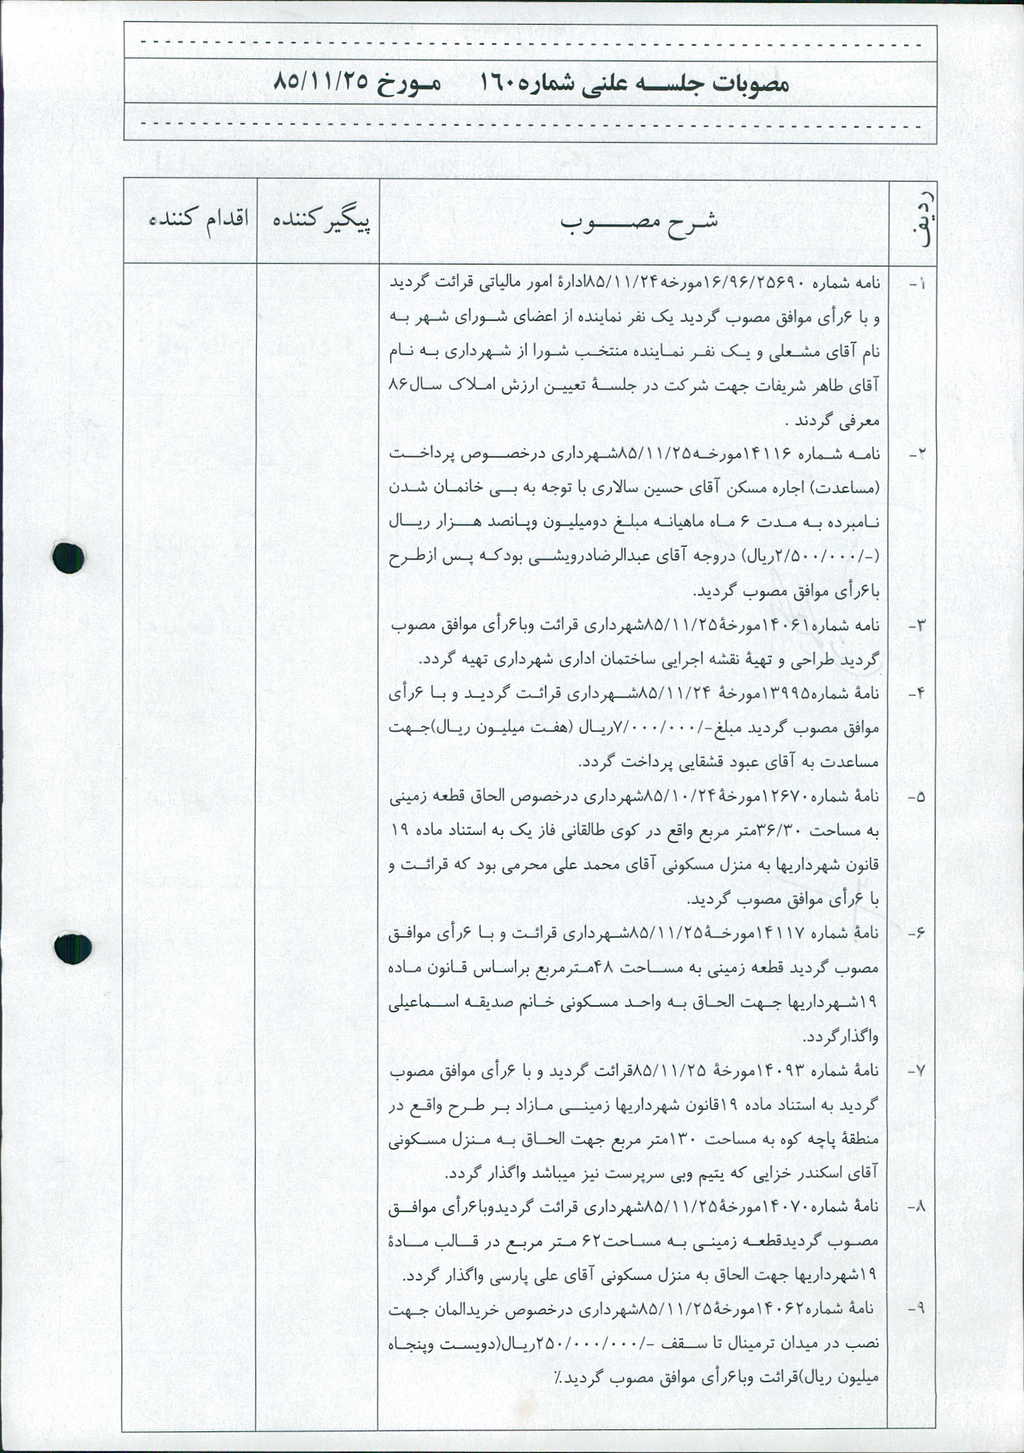 مصوبات جلسه علنی شماره ۱۶۰ مورخ ۸۵/۱۱/۲۵
ردیف شرح مصوب پیگیر کننده اقدام کننده
۱- نامه شماره ۱۶/۹۶/۲۵۶۹۰مورخه ۸۵/۱۱/۲۴ادارۀ امور مالیاتی قرائت گردید
و با ۶رأی موافق مصوب گردید یک نفر نماینده از اعضای شورای شهر به
نام آقای مشعلی و یک نفر نماینده منتخب شورا از شهرداری به نام
آقای طاهر شریفات جهت شرکت در جلسۀ تعیین ارزش املاک سال۸۶
معرفی گردند .
۲- نامه شماره ۱۴۱۱۶مورخه۸۵/۱۱/۲۵شهرداری درخصوص پرداخت
(مساعدت) اجاره مسکن آقای حسین سالاری با توجه به بی خانمان شدن
نامبرده به مدت ۶ ماه ماهیانه مبلغ دومیلیون وپانصد هزار ریال
(-/۲/۵۰۰/۰۰۰ریال) دروجه آقای عبدالرضادرویشی بودکه پس ازطرح
با۶رأی موافق مصوب گردید.
۳- نامه شماره۱۴۰۶۱مورخۀ۸۵/۱۱/۲۵شهرداری قرائت وبا۶رأی موافق مصوب
گردید طراحی و تهیۀ نقشه اجرایی ساختمان اداری شهرداری تهیه گردد.
۴- نامۀ شماره۱۳۹۹۵مورخۀ ۸۵/۱۱/۲۴شهرداری قرائت گردید و با ۶رأی
موافق مصوب گردید مبلغ-/۷/۰۰۰/۰۰۰ریال (هفت میلیون ریال)جهت
مساعدت به آقای عبود قشقایی پرداخت گردد.
۵- نامۀ شماره۱۲۶۷۰مورخۀ۸۵/۱۰/۲۴شهرداری درخصوص الحاق قطعه زمینی
به مساحت ۳۶/۳۰متر مربع واقع در کوی طالقانی فاز یک به استناد ماده ۱۹
قانون شهرداریها به منزل مسکونی آقای محمد علی محرمی بود که قرائت و
با ۶رأی موافق مصوب گردید.
۶- نامۀ شماره ۱۴۱۱۷مورخۀ۸۵/۱۱/۲۵شهرداری قرائت و با ۶رأی موافق
مصوب گردید قطعه زمینی به مساحت ۴۸مترمربع براساس قانون ماده
۱۹شهرداریها جهت الحاق به واحد مسکونی خانم صدیقه اسماعیلی
واگذارگردد.
۷- نامۀ شماره ۱۴۰۹۳مورخۀ ۸۵/۱۱/۲۵قرائت گردید و با ۶رأی موافق مصوب
گردید به استناد ماده ۱۹قانون شهرداریها زمینی مازاد بر طرح واقع در
منطقۀ پاچه کوه به مساحت ۱۳۰متر مربع جهت الحاق به منزل مسکونی
آقای اسکندر خزایی که یتیم وبی سرپرست نیز میباشد واگذار گردد.
۸- نامۀ شماره۱۴۰۷۰مورخۀ۸۵/۱۱/۲۵شهرداری قرائت گردیدوبا۶رأی موافق
مصوب گردیدقطعه زمینی به مساحت۶۲ متر مربع در قالب مادۀ
۱۹شهرداریها جهت الحاق به منزل مسکونی آقای علی پارسی واگذار گردد.
۹- نامۀ شماره۱۴۰۶۲مورخۀ۸۵/۱۱/۲۵شهرداری درخصوص خریدالمان جهت
نصب در میدان ترمینال تا سقف -/۲۵۰/۰۰۰/۰۰۰ریال(دویست وپنجاه
میلیون ریال)قرائت وبا۶رأی موافق مصوب گردید.٪